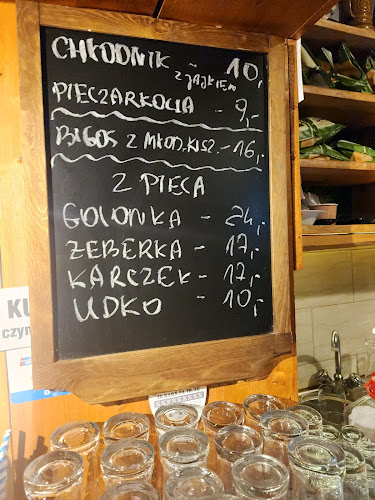 CHŁODNIK - 10,-
Z JAJKIEM
PIECZARKOWA - 9,-
BIGOS Z MŁOD. KISZ. - 16,-
Z PIECA
GOLONKA - 24,-
ŻEBERKA - 17,-
KARCZEK - 17,-
UDKO - 10,-
KU
czyn